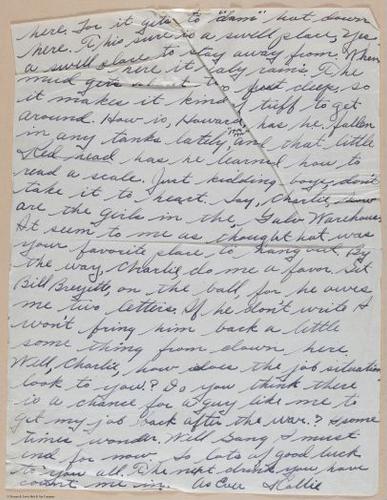 here. For it gets to "dam" hot down
here. This sure is a swell place, yes
a swell place to stay away from. When
here it rains. The
mud gets about two feet deep, so
it makes it kind a tuff to get
around. How is, Howard, has he fallen
in any tanks lately, and that little
Red head has he learned how to
read a scale. Just kidding boys, don't
take it to heart. Say, Charlie, how
are the girls in the, Galv Warehouse
It seem to me as thought that was
your favorite place to hang out. By
the way, Charlie do me a favor. Get
Bill on the ball, for he owes
me two letters. If he don't write I
won't bring him back a little
some thing from down here.
Well, Charlie, how does the job situation
look to you? Do you think there
is a chance for a guy like me to
get my job back after the war? I some
times wonder. Well Gang I must
end for now. So lots of good luck
to you all. The next drink you have
count me in. As Ever